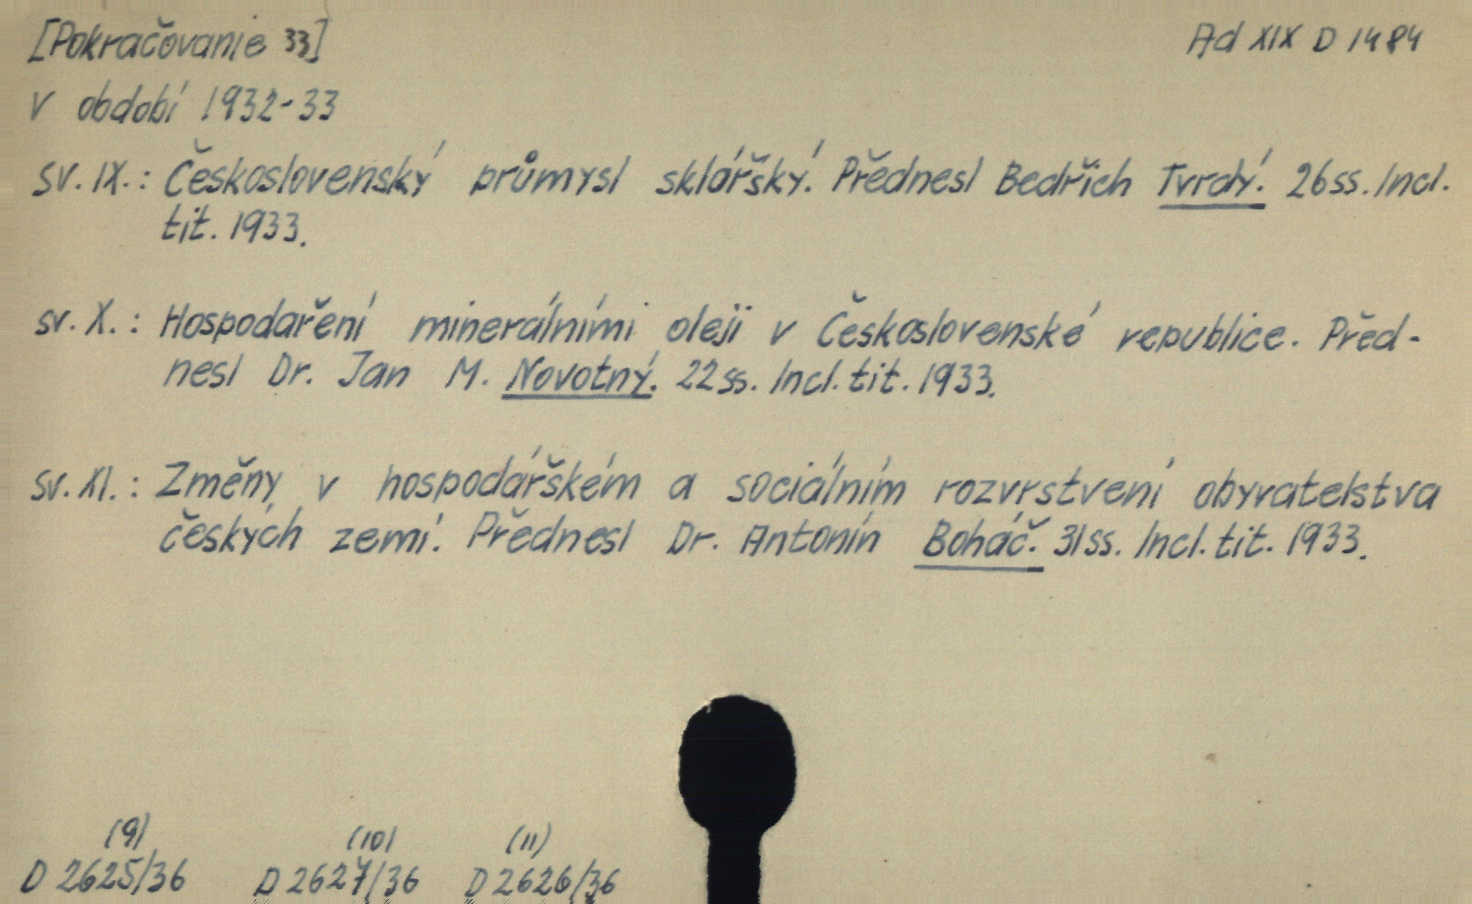 [Pokračovanie 33] Ad XIX D 1484
V období 1932-33
sv. IX.: Československý průmysl sklářšký. Přednesl Bedřich Tvrdý. 26 ss. Incl.
tit. 1933.
sv. X.: Hospodaření minerálními oleji v Československé republice. Před-
nesl Dr. Jan M. Novotný. 22 ss. Incl. tit. 1933.
sv. XI.: Změny v hospodářškém a sociálním rozvrstvení obyvatelstva
českých zemí. Přednesl Dr. Antonín Boháč. 31 ss. Incl. tit. 1933.
(9) (10) (11)
D 2625/36 D 2627/36 D 2626/36